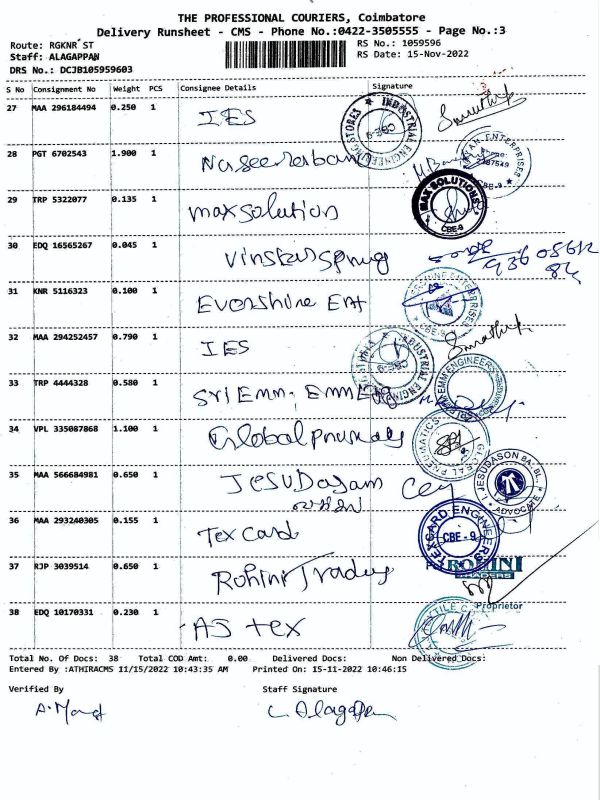 THE PROFESSIONAL COURIERS, Coimbatore
Delivery Runsheet - CMS - Phone No.:0422-3505555 - Page No.:3
Route: RGKNR ST RS No.: 1059596
Staff: ALAGAPPAN RS Date: 15-Nov-2022
DRS No.: DCJB105959603
S No Consignment No Weight PCS Consignee Details Signature
27 MAA 296184494 0.250 1 IES
INDUSTRIAL ENGINEERING STORES CBE-9
28 PGT 6702543 1.900 1 Naseemerbanu
ENTERPRISES CBE-9
29 TRP 5322077 0.135 1 maxsolution
MAX SOLUTIONS CBE-9
30 EDQ 16565267 0.045 1 Vinstarspring
31 KNR 5116323 0.100 1 Evershine Ent
ENTERPRISES CBE-9
32 MAA 294252457 0.790 1 IES
INDUSTRIAL ENGINEERING STORES CBE-9
33 TRP 4444328 0.580 1 Sri Emm. Emm Eng
EMM ENGINEERS
34 VPL 335087868 1.100 1 Global pnumatics
GLOBAL PNEUMATICS
35 MAA 566684981 0.650 1 Jesudasan
I. JESUDASON BA. BL. ADVOCATE
36 MAA 293240305 0.155 1 Tex card
TEXCARD ENGINEERS CBE-9
37 RJP 3039514 0.650 1 Rohini Trades
ROHINI TRADERS
Proprietor
38 EDQ 10170331 0.230 1 AS tex
Total No. Of Docs: 38 Total COD Amt: 0.00 Delivered Docs: Non Delivered Docs:
Entered By :ATHIRACMS 11/15/2022 10:43:35 AM Printed On: 15-11-2022 10:46:15
Verified By Staff Signature
L Alagappan